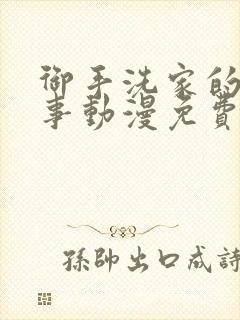 御手洗家的
事動漫免費
孫帥出口成詩